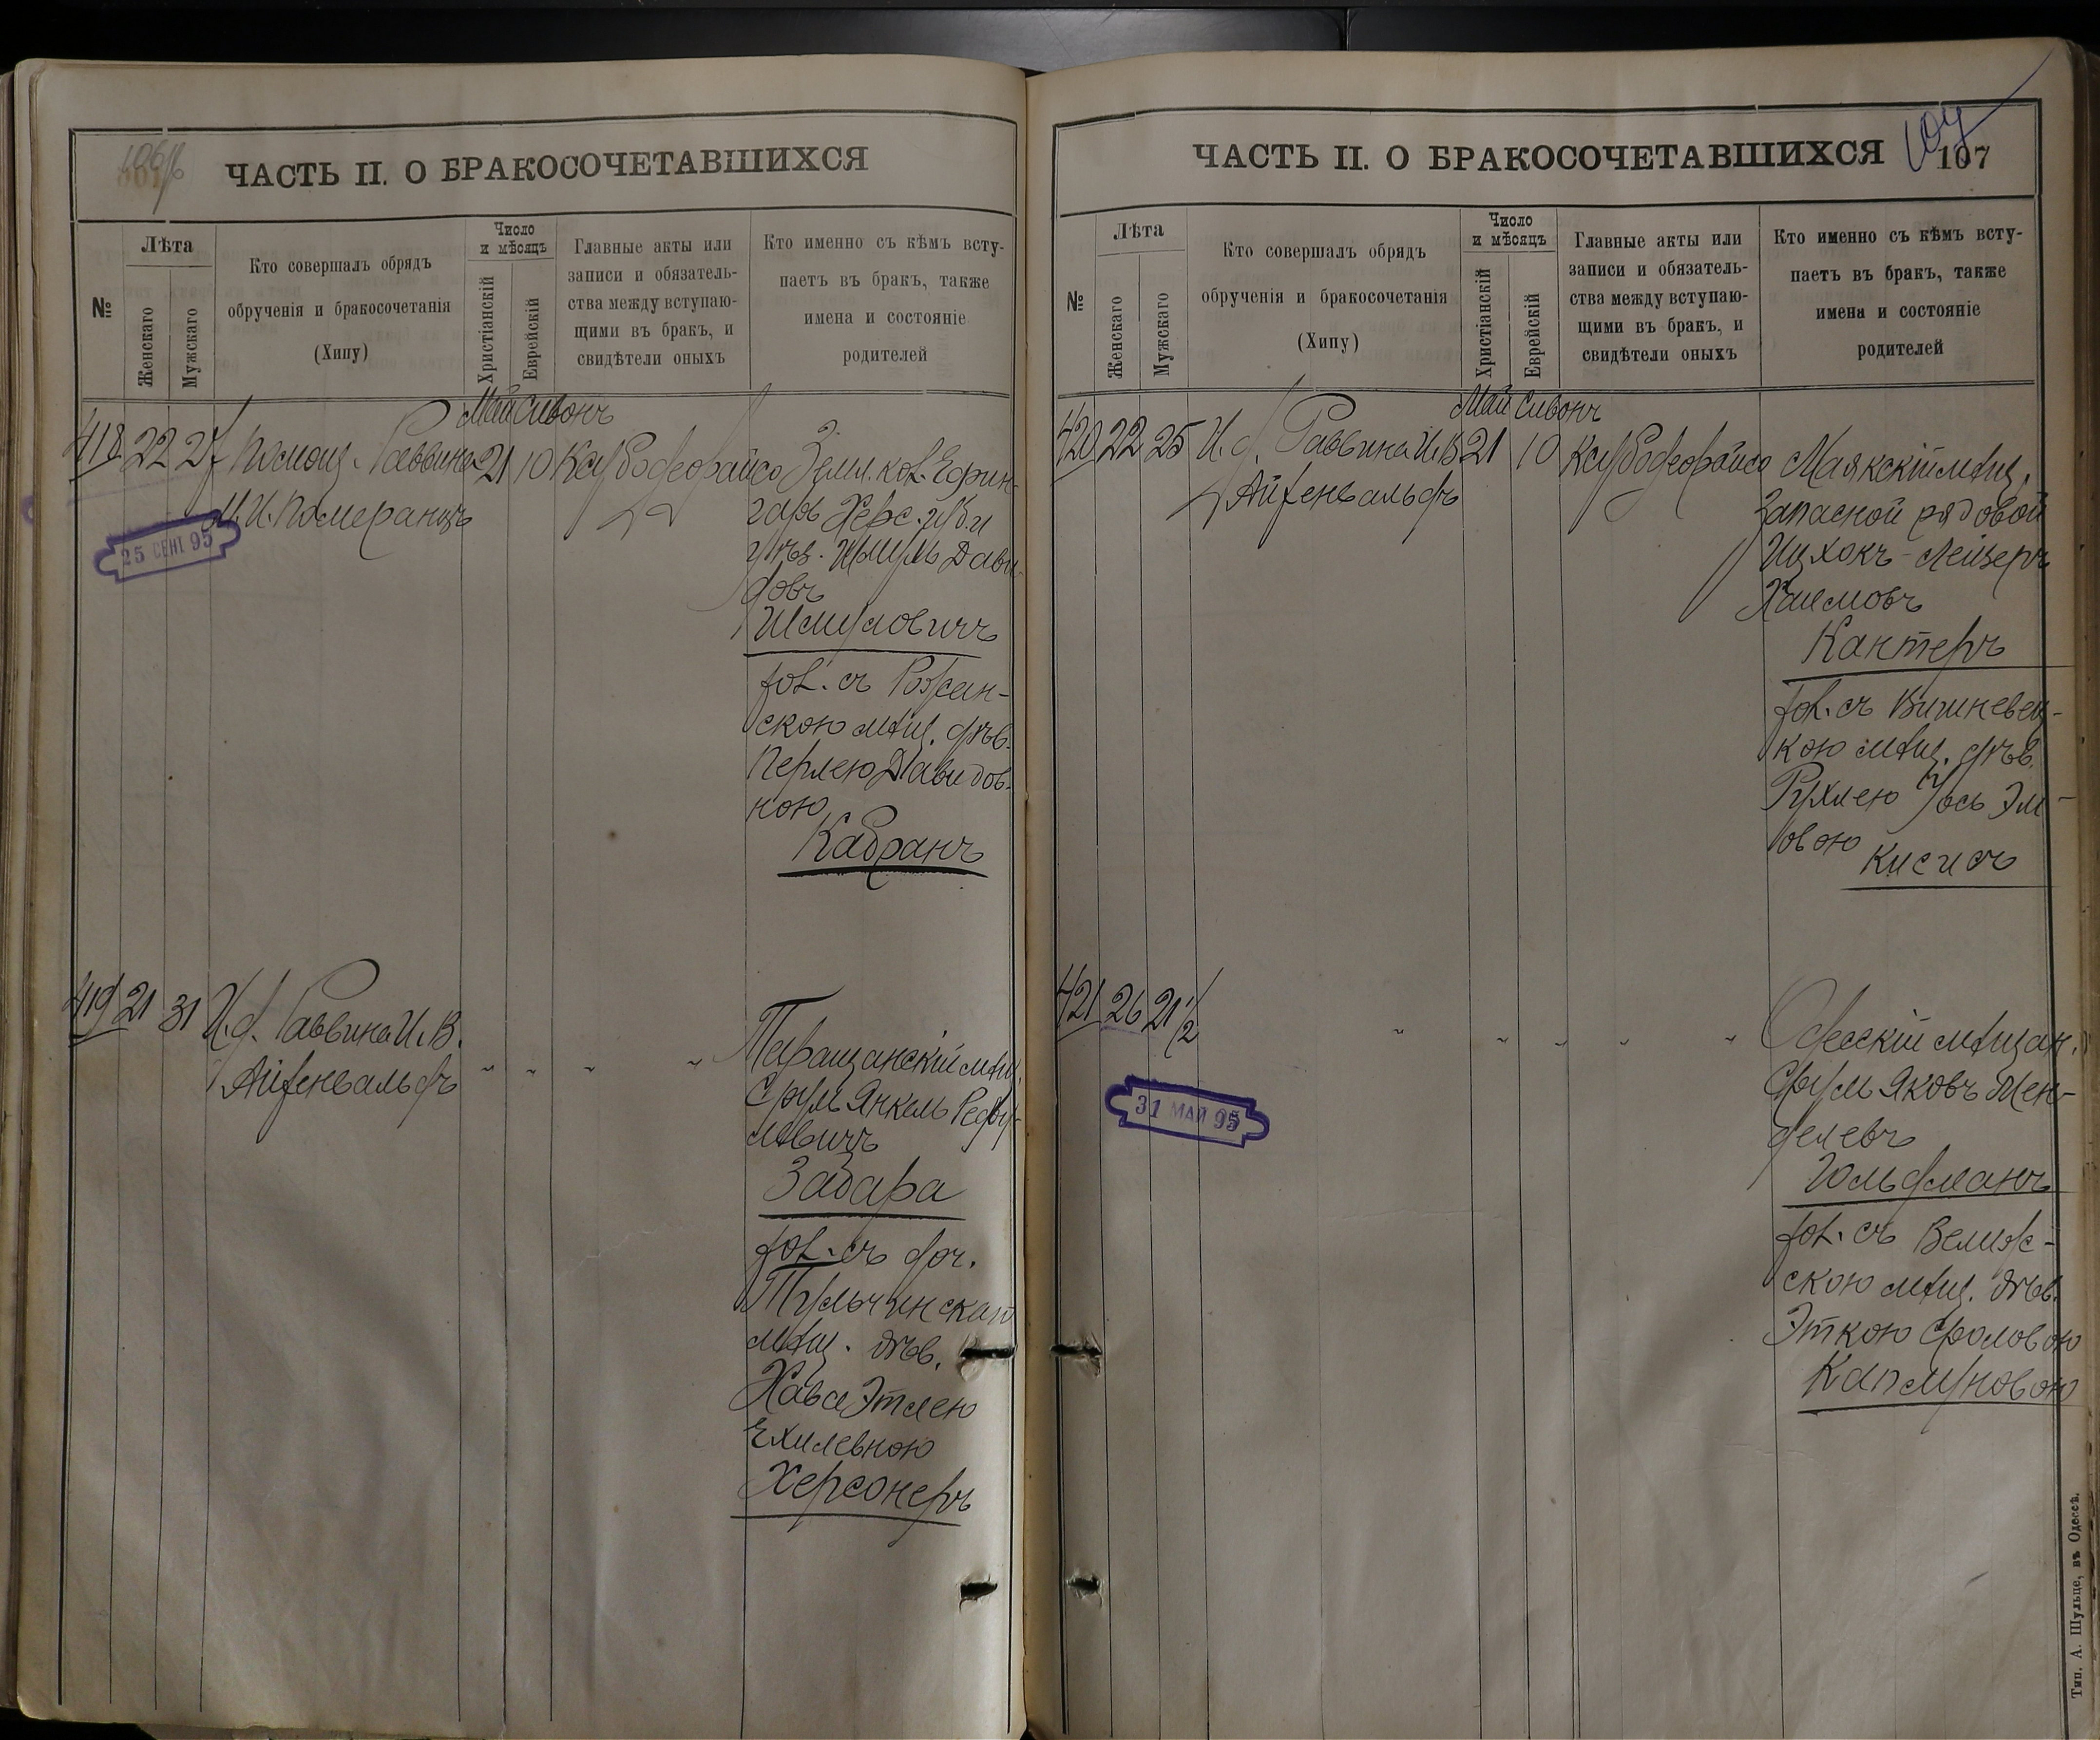 106
ЧАСТЬ II. О БРАКОСОЧЕТАВШИХСЯ
№
Лѣта
Женскаго
Мужскаго
Кто совершалъ обрядъ
обрученія и бракосочетанія
(Хипу)
Число
и мѣсяцъ
Христіанскій
Еврейскій
Главные акты или
записи и обязатель-
ства между вступаю-
щими въ бракъ, и
свидѣтели оныхъ
Кто именно съ кѣмъ всту-
паетъ въ бракъ, также
имена и состояніе
родителей
Май Сивонъ
418 22 27 Помощ. Раввина 21 10
М. И. Померанцъ
25 СЕНТ 95
Земл. кол. Ефин-
гаръ Херс. губ. и
Давы-
довъ
Шмуловичъ
хол. съ Рожан-
скою мѣщ. дѣв.
Перлею Давидов-
ною
Кабранъ
419 21 31 И. д. Раввина И. В.
Айзенвальдъ
Таращанскій мѣщ.
Срулъ Янкель
Забара
хол. съ доч.
Тульчинскаго
мѣщ. дѣв.
Хава Этлею
Ехилевною
Херсонеръ
ЧАСТЬ II. О БРАКОСОЧЕТАВШИХСЯ
107
107
№
Лѣта
Женскаго
Мужскаго
Кто совершалъ обрядъ
обрученія и бракосочетанія
(Хипу)
Число
и мѣсяцъ
Христіанскій
Еврейскій
Главные акты или
записи и обязатель-
ства между вступаю-
щими въ бракъ, и
свидѣтели оныхъ
Кто именно съ кѣмъ всту-
паетъ въ бракъ, также
имена и состояніе
родителей
Май Сивонъ
420 22 25 И. д. Раввина И. В. 21 10
Айзенвальдъ
Маякскій мѣщ.
Запасной рядовой
Ицхокъ-Лейзеръ
Хаимовъ
Кантеръ
хол. съ Вишневец-
кою мѣщ. дѣв.
Рухлею
Кисисъ
421 26 21 1/2
31 МАЙ 95
Одесскій мѣщан.
Срулъ Яковъ Мен-
делевъ
Гольдманъ
хол. съ Велиж-
скою мѣщ. дѣв.
Эткою Сроловою
Каплуновою
Тип. А. Шульце, въ Одессѣ.